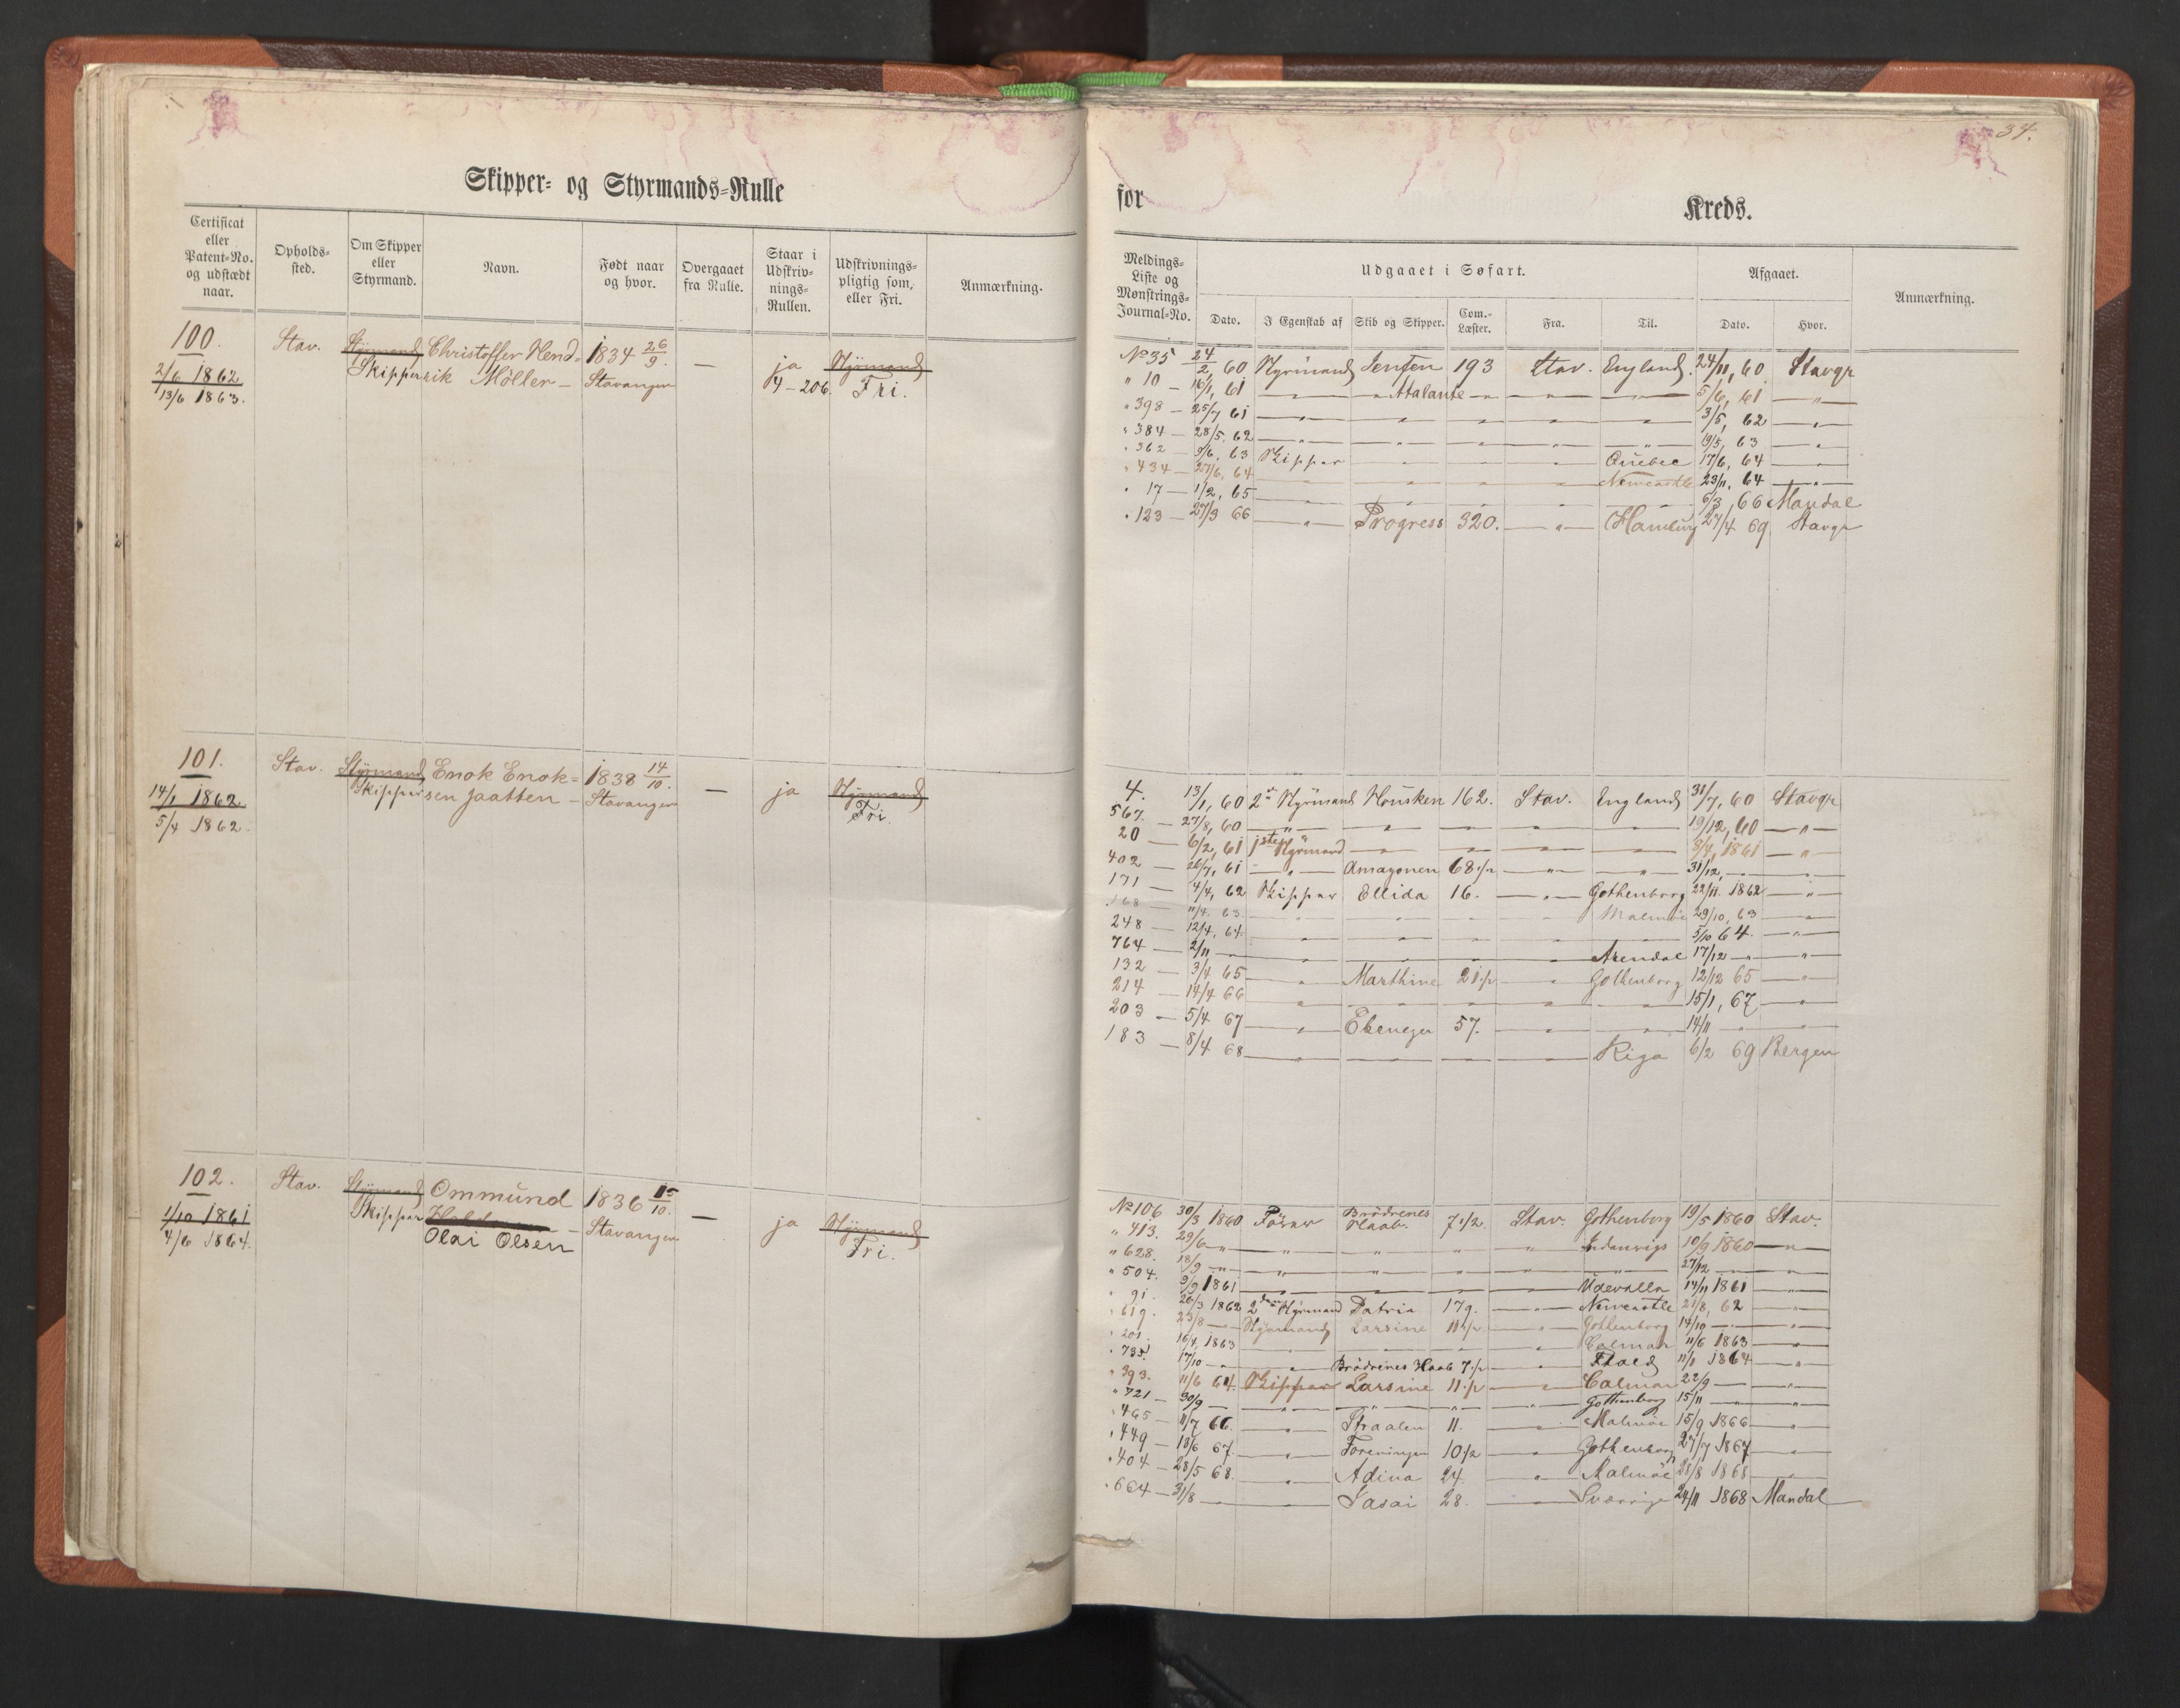 Skipper- og Styrmands-Rulle
Certificat eller Patent-No. og udstædt naar.
Opholds-sted.
Om Skipper eller Styrmand.
Navn.
Født naar og hvor.
Overgaaet fra Rulle.
Staar i Udskriv-nings-Rullen.
Udskrivnings-pligtig som, eller Fri.
Anmærkning.
100. Stav. Styrmand Christoffer Hend= 1834 26/9. — ja Styrmand
2/6 1862 Skipper rik Möller — Stavanger 4-206. Fri.
13/6 1863.
101. Stav. Styrmand Enok Enok= 1838 14/10. — ja Styrmand
14/1 1862 Skipper sen Jaatten — Stavanger Fri.
5/4 1862.
102. Stav. Styrmand Ommund 1836 15/10. — ja Styrmand
1/10 1861 Skipper — Stavanger Fri.
4/6 1864. Olai Olsen
34.
for Kreds.
Meldings-Liste og Mønstrings-Journal-No.
Udgaaet i Søfart.
Afgaaet.
Anmærkning.
Dato. I Egenskab af Skib og Skipper. Com.-Læster. Fra. Til. Dato. Hvor.
No 35 24/2, 60 Styrmand Jensen 193 Stav. England. 24/11, 60 Stavgr
" 10 — 16/1, 61 — " Atalante — " — — 5/6, 61 — " —
" 398 — 25/7 61 — " — " — " — " — " — 3/5, 62 — " —
" 384 — 28/5. 62 — " — " — " — " — " — 19/5, 63 — " —
" 362 — 9/6, 63 Skipper — " — " — " — Quebec 17/6, 64 — " —
" 434 — 27/6, 64 — " — " — " — Newcastle 23/11, 64 — " —
" 17 — 1/2, 65 — " — " — " — " — 6/3, 66 Mandal
" 123 — 27/3 66 — " — Progress 320. — " — Hamburg 27/4 69 Stavgr
4. 13/1, 60 2n Styrmand Housken 162. Stav. England 31/7, 60 Stavgr
567. — 27/8, 60 — " — " — — — — 19/12, 60 — " —
20 — 6/2, 61 1ste Styrmand — " — — — — 3/4, 1861 — " —
402 — 26/7, 61 — " — Amazonen 68 1/2 — " — " — 31/12, — " —
171 — 4/4, 62 Skipper Ellida 16. — " — Gothenborg 22/11. 1862 — " —
168 — 11/4, 63. — " — " — " — " — Malmöe 29/10, 63 — " —
248 — 12/4, 64. — " — " — " — " — 5/10 64. — " —
764 — 2/11 — " — " — " — " — Arendal 17/12 — " — " —
132 — 3/4 65 — " — Marthine 21 1/2 — " — Gothenborg 12/12 65 — " —
214 — 14/4 66 — " — " — " — " — " — 15/1, 67 — " —
203 — 5/4 67 — " — Ebenezer 57. — " — " — 14/11 — " —
183 — 8/4 68 — " — — — — Riga 6/2 69 Bergen
No 106 30/3 1860 Förer Brödrenes Haab. 7 1/2. Stav. Gothenborg 19/5 1860 Stav.
" 413. 29/6 — " — " — " — " — " — 10/9 1860 — " —
" 628. 18/9 — " — " — " — " — " — " — 27/12 — " —
" 504. 9/9 1861 — — — — Udevalla 14/11 1861 — " —
" 91. 26/3 1862 2den Styrmand Patria 179. — " — Newcastle 21/8, 62 — " —
" 619. 23/8 — Styrmand Larsine 11 1/2 — " — Gothenborg 14/10 — " —
" 201. 16/4, 1863 — " — " — " — " — Calmar 11/6 1863 — " —
" 735. 17/10 — " — " — Brödrenes Haab 7 1/2 — " — 11/1 1864 — " —
" 393. 11/6 64. Skipper Larsine 11 1/2 — " — Calmar 22/9 — " —
" 721 — 30/9 — " — " — " — " — Gothenborg 15/11 — " —
" 465 — 11/7 66. — " — Straalen 11. — " — Malmöe 15/9 1866 — " —
" 449 — 18/6 67. — " — Foreningen 10 1/2 — " — Gothenborg 27/7 1867 — " —
" 404 — 28/5 68. — " — Adina 24. — " — Malmöe 21/8 1868 — " —
" 664 — 31/8 — — 28. — Sverrige 24/11 1868 Mandal —